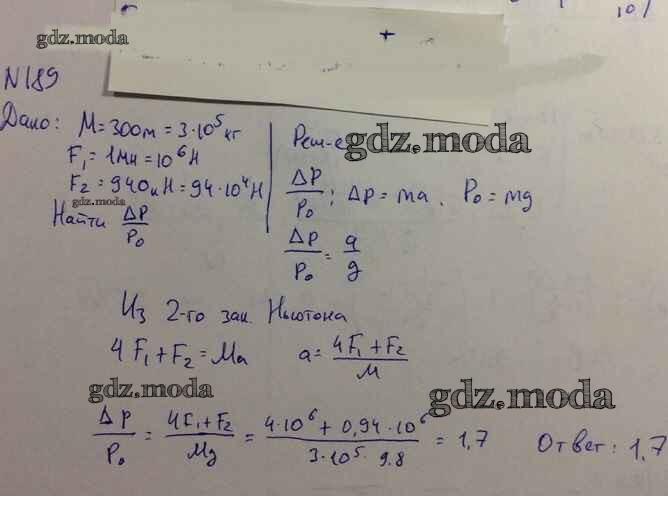 10/
gdz.moda
+
N189
Дано: M=300т=3·10⁵кг
F₁=1МН=10⁶Н
F₂=940кН=94·10⁴Н
gdz.moda
Найти ΔP/P₀
Реш-е
gdz.moda
ΔP/P₀; ΔP=ma. P₀=mg
ΔP/P₀=a/g
Из 2-го зак. Ньютона
4F₁+F₂=Ma a=(4F₁+F₂)/M
gdz.moda
gdz.moda
ΔP/P₀=(4F₁+F₂)/Mg=(4·10⁶+0,94·10⁶)/(3·10⁵·9.8)=1,7 Ответ: 1,7